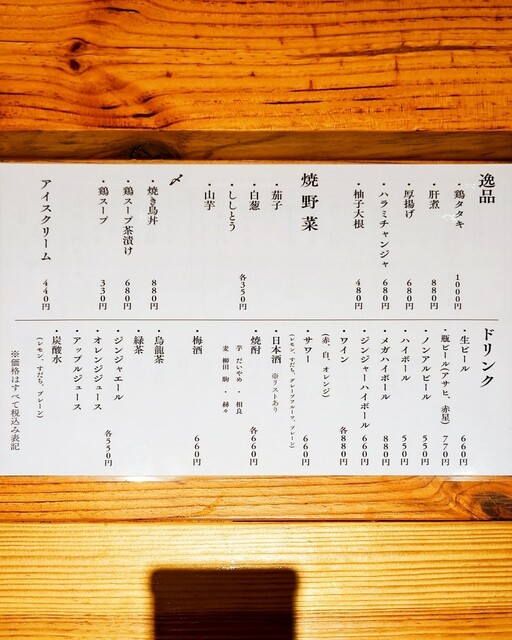 逸品
・鶏タタキ 1000円
・肝煮 880円
・厚揚げ 680円
・ハラミチャンジャ 680円
・柚子大根 480円
焼野菜
・茄子
・白葱 各350円
・ししとう
・山芋
〆
・焼き鳥丼 880円
・鶏スープ茶漬け 680円
・鶏スープ 330円
アイスクリーム 440円
ドリンク
・生ビール 660円
・瓶ビール(アサヒ、赤星) 770円
・ノンアルビール 550円
・ハイボール 550円
・メガハイボール 880円
・ジンジャーハイボール 660円
・ワイン 各880円
(赤、白、オレンジ)
・サワー 660円
(レモン、すだち、グレープフルーツ、プレーン)
・日本酒 ※リストあり
・焼酎 各660円
芋 だいやめ ・ 相良
麦 柳田 駒 ・ 赫々
・梅酒 660円
・烏龍茶
・緑茶
・ジンジャエール
・オレンジジュース 各550円
・アップルジュース
・炭酸水
(レモン、すだち、プレーン)
※価格はすべて税込み表記